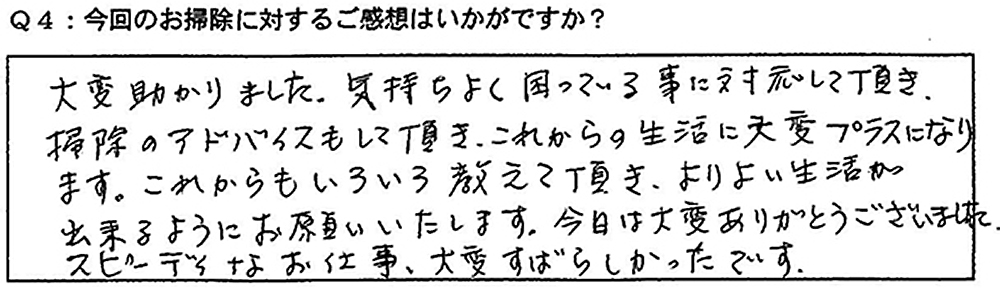 Q4：今回のお掃除に対するご感想はいかがですか？
大変助かりました。気持ちよく困っている事に対応して頂き、
掃除のアドバイスもして頂き、これからの生活に大変プラスになり
ます。これからもいろいろ教えて頂き、よりよい生活が
出来るようにお願いいたします。今日は大変ありがとうございました。
スピーディなお仕事、大変すばらしかったです。